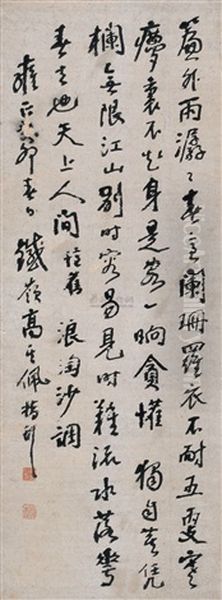 簾外雨潺〻春意闌珊羅衣不耐五更寒
夢裏不知身是客一晌貪懽獨自莫凭
欄無限江山別時容易見時難流水落花
春去也天上人間 懷舊 浪淘沙調
雍正癸卯春日鐵嶺高其佩指